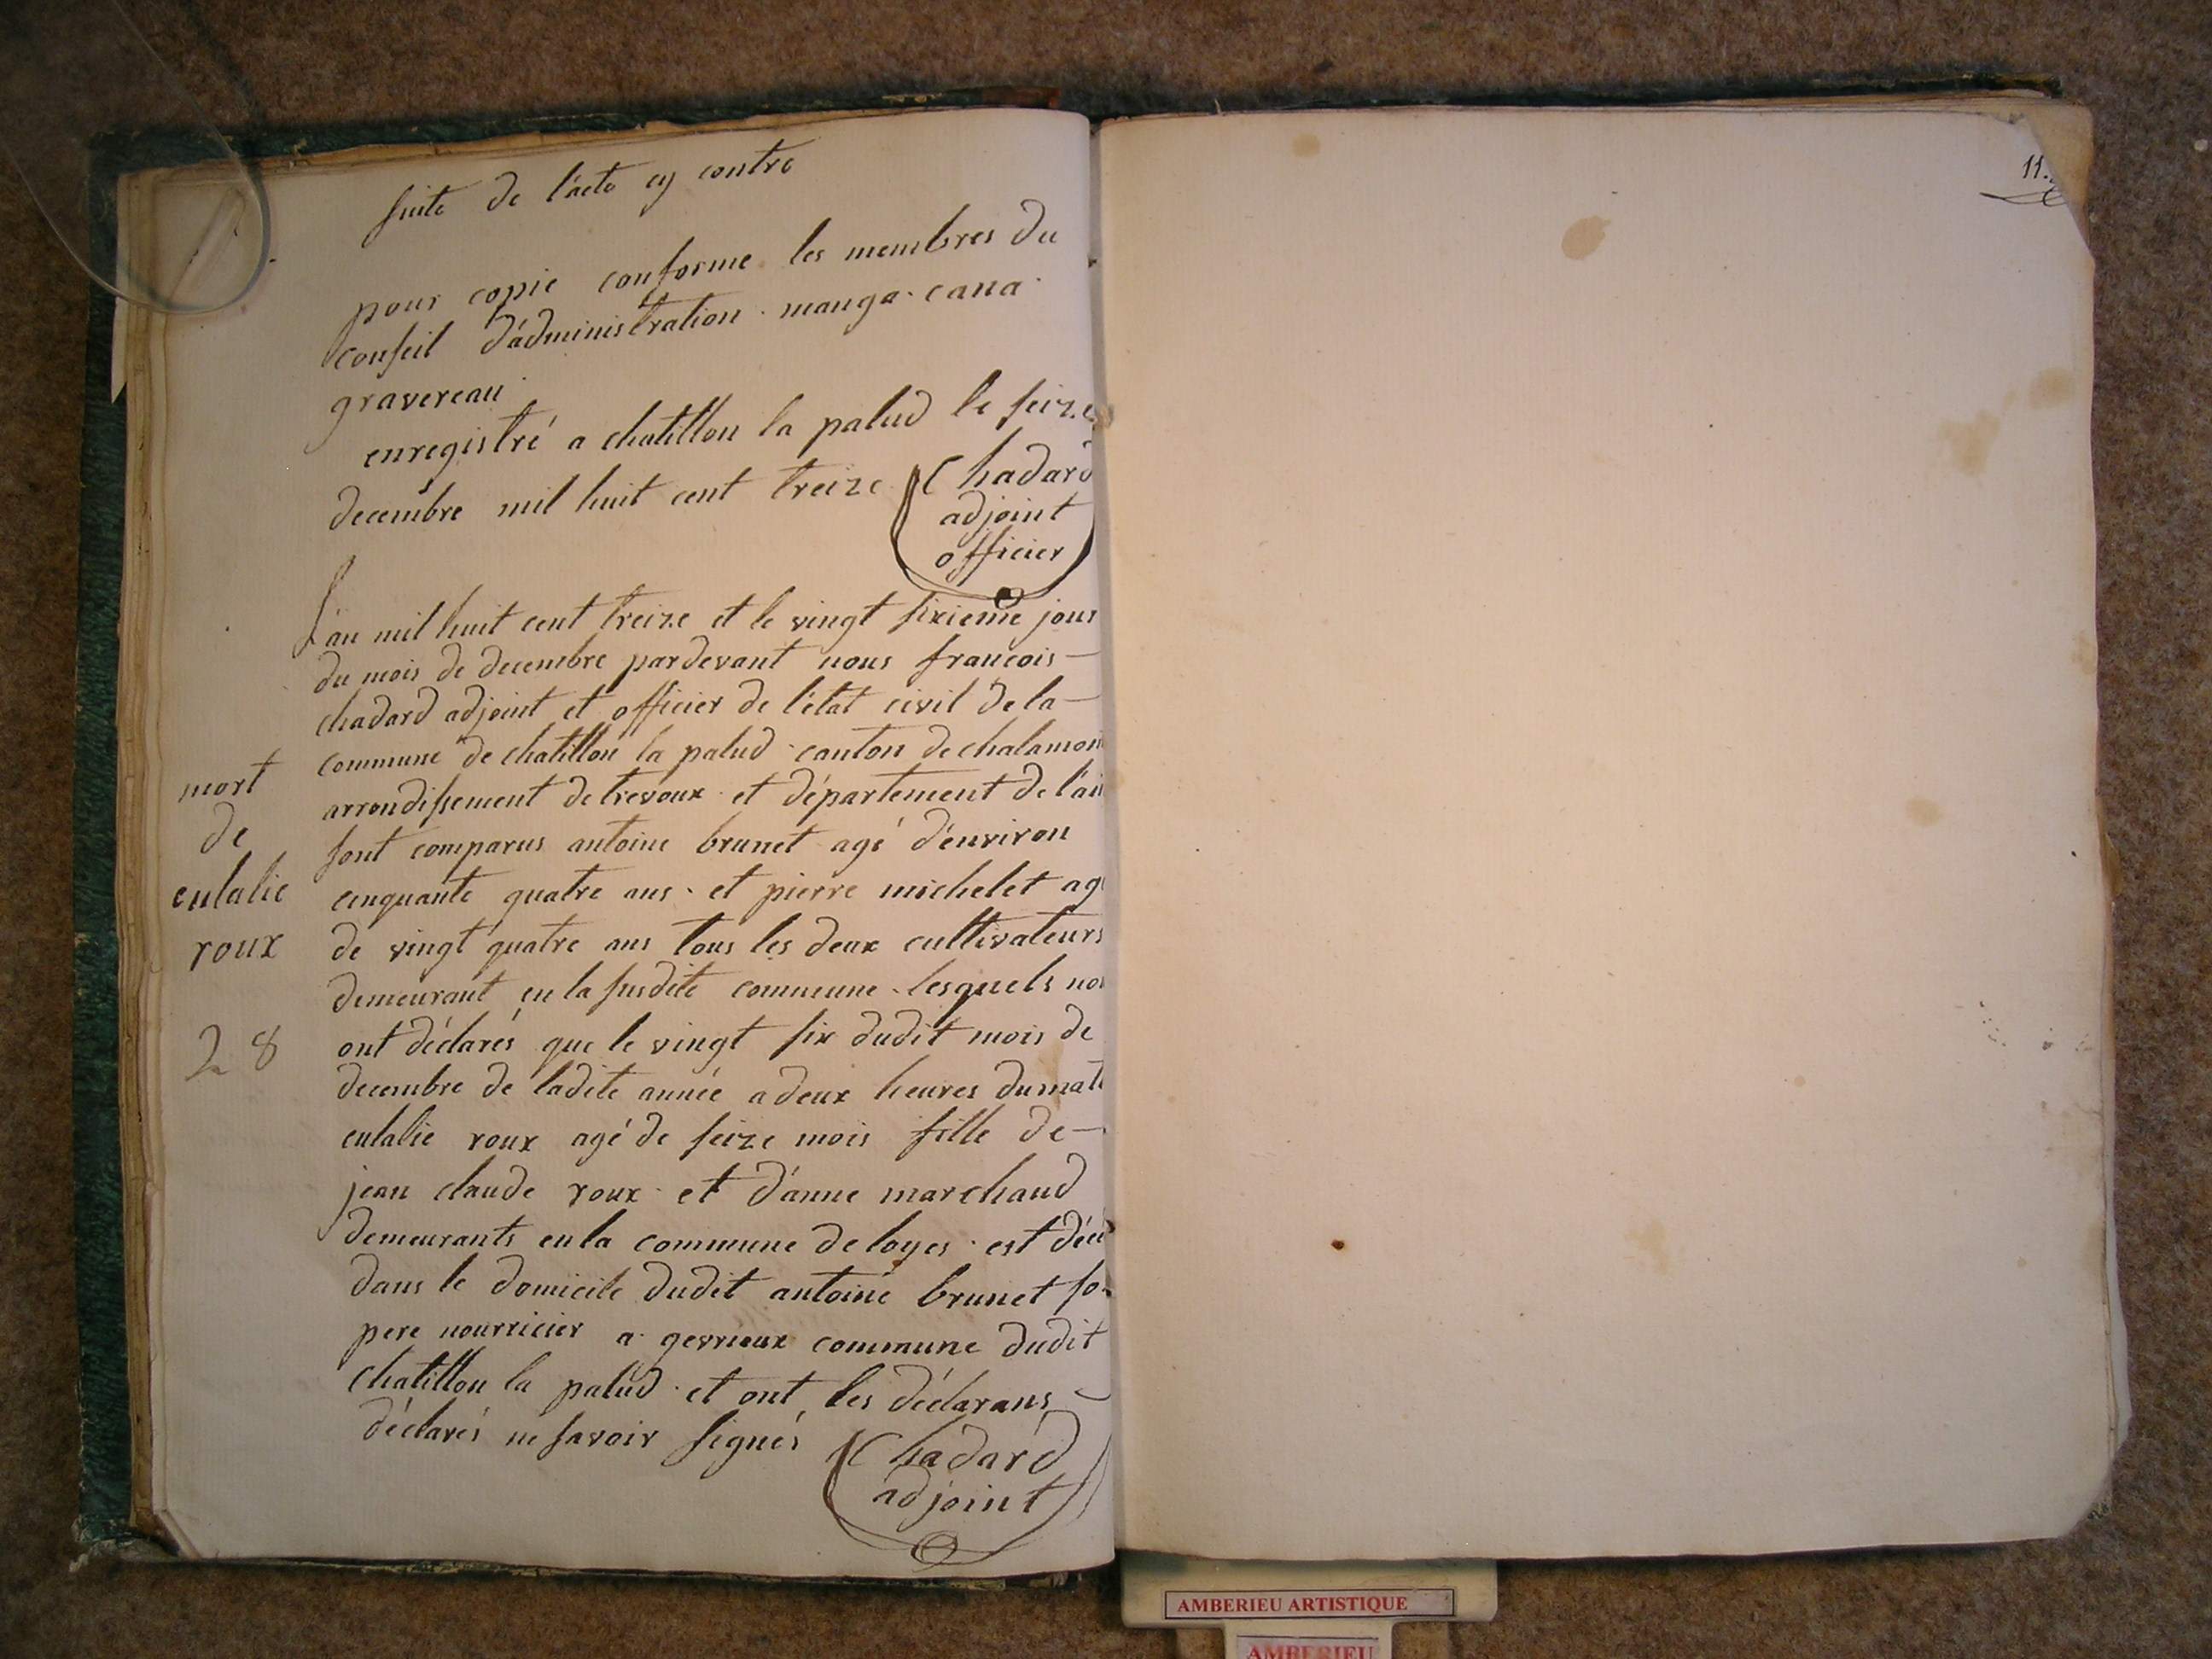 suite de l'acte cy contre
pour copie conforme les membres du
conseil d'administration . manga . cana .
gravereau
enregistré a chatillon la palud le seize
decembre mil huit cent treize
Chadard
adjoint
officier
L'an mil huit cent treize et le vingt sixieme jour
du mois de decembre pardevant nous francois —
chadard adjoint et officier de l'état civil de la —
commune de chatillon la palud . canton de chalamont
arrondissement de trevoux . et département de l'ain
sont comparus antoine brunet agé d'environ
cinquante quatre ans . et pierre michelet agé
de vingt quatre ans tous les deux cultivateurs
demeurant en la susdite commune . lesquels nou
ont déclarés que le vingt six dudit mois de
decembre de ladite année a deux heures du mati
eulalie roux agé de seize mois fille de —
jean claude roux . et d'anne marchand
demeurants en la commune de loyes . est décé
dans le domicile dudit antoine brunet so
pere nourricier a gevrieux commune dudit
chatillon la palud . et ont les déclarans —
déclarés ne savoir signés
Chadard
adjoint
mort
de
eulalie
roux
28
11.
AMBERIEU ARTISTIQUE
AMBERIEU